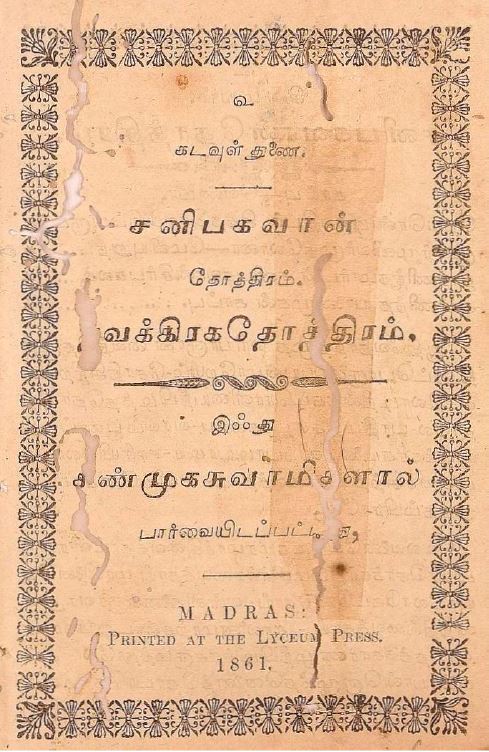 உ
கடவுள் துணை.
சனிபகவான்
தோத்திரம்.
நவக்கிரகதோத்திரம்.
இஃது
சண்முகசுவாமிகளால்
பார்வையிடப்பட்டது,
MADRAS:
PRINTED AT THE LYCEUM PRESS.
1861.